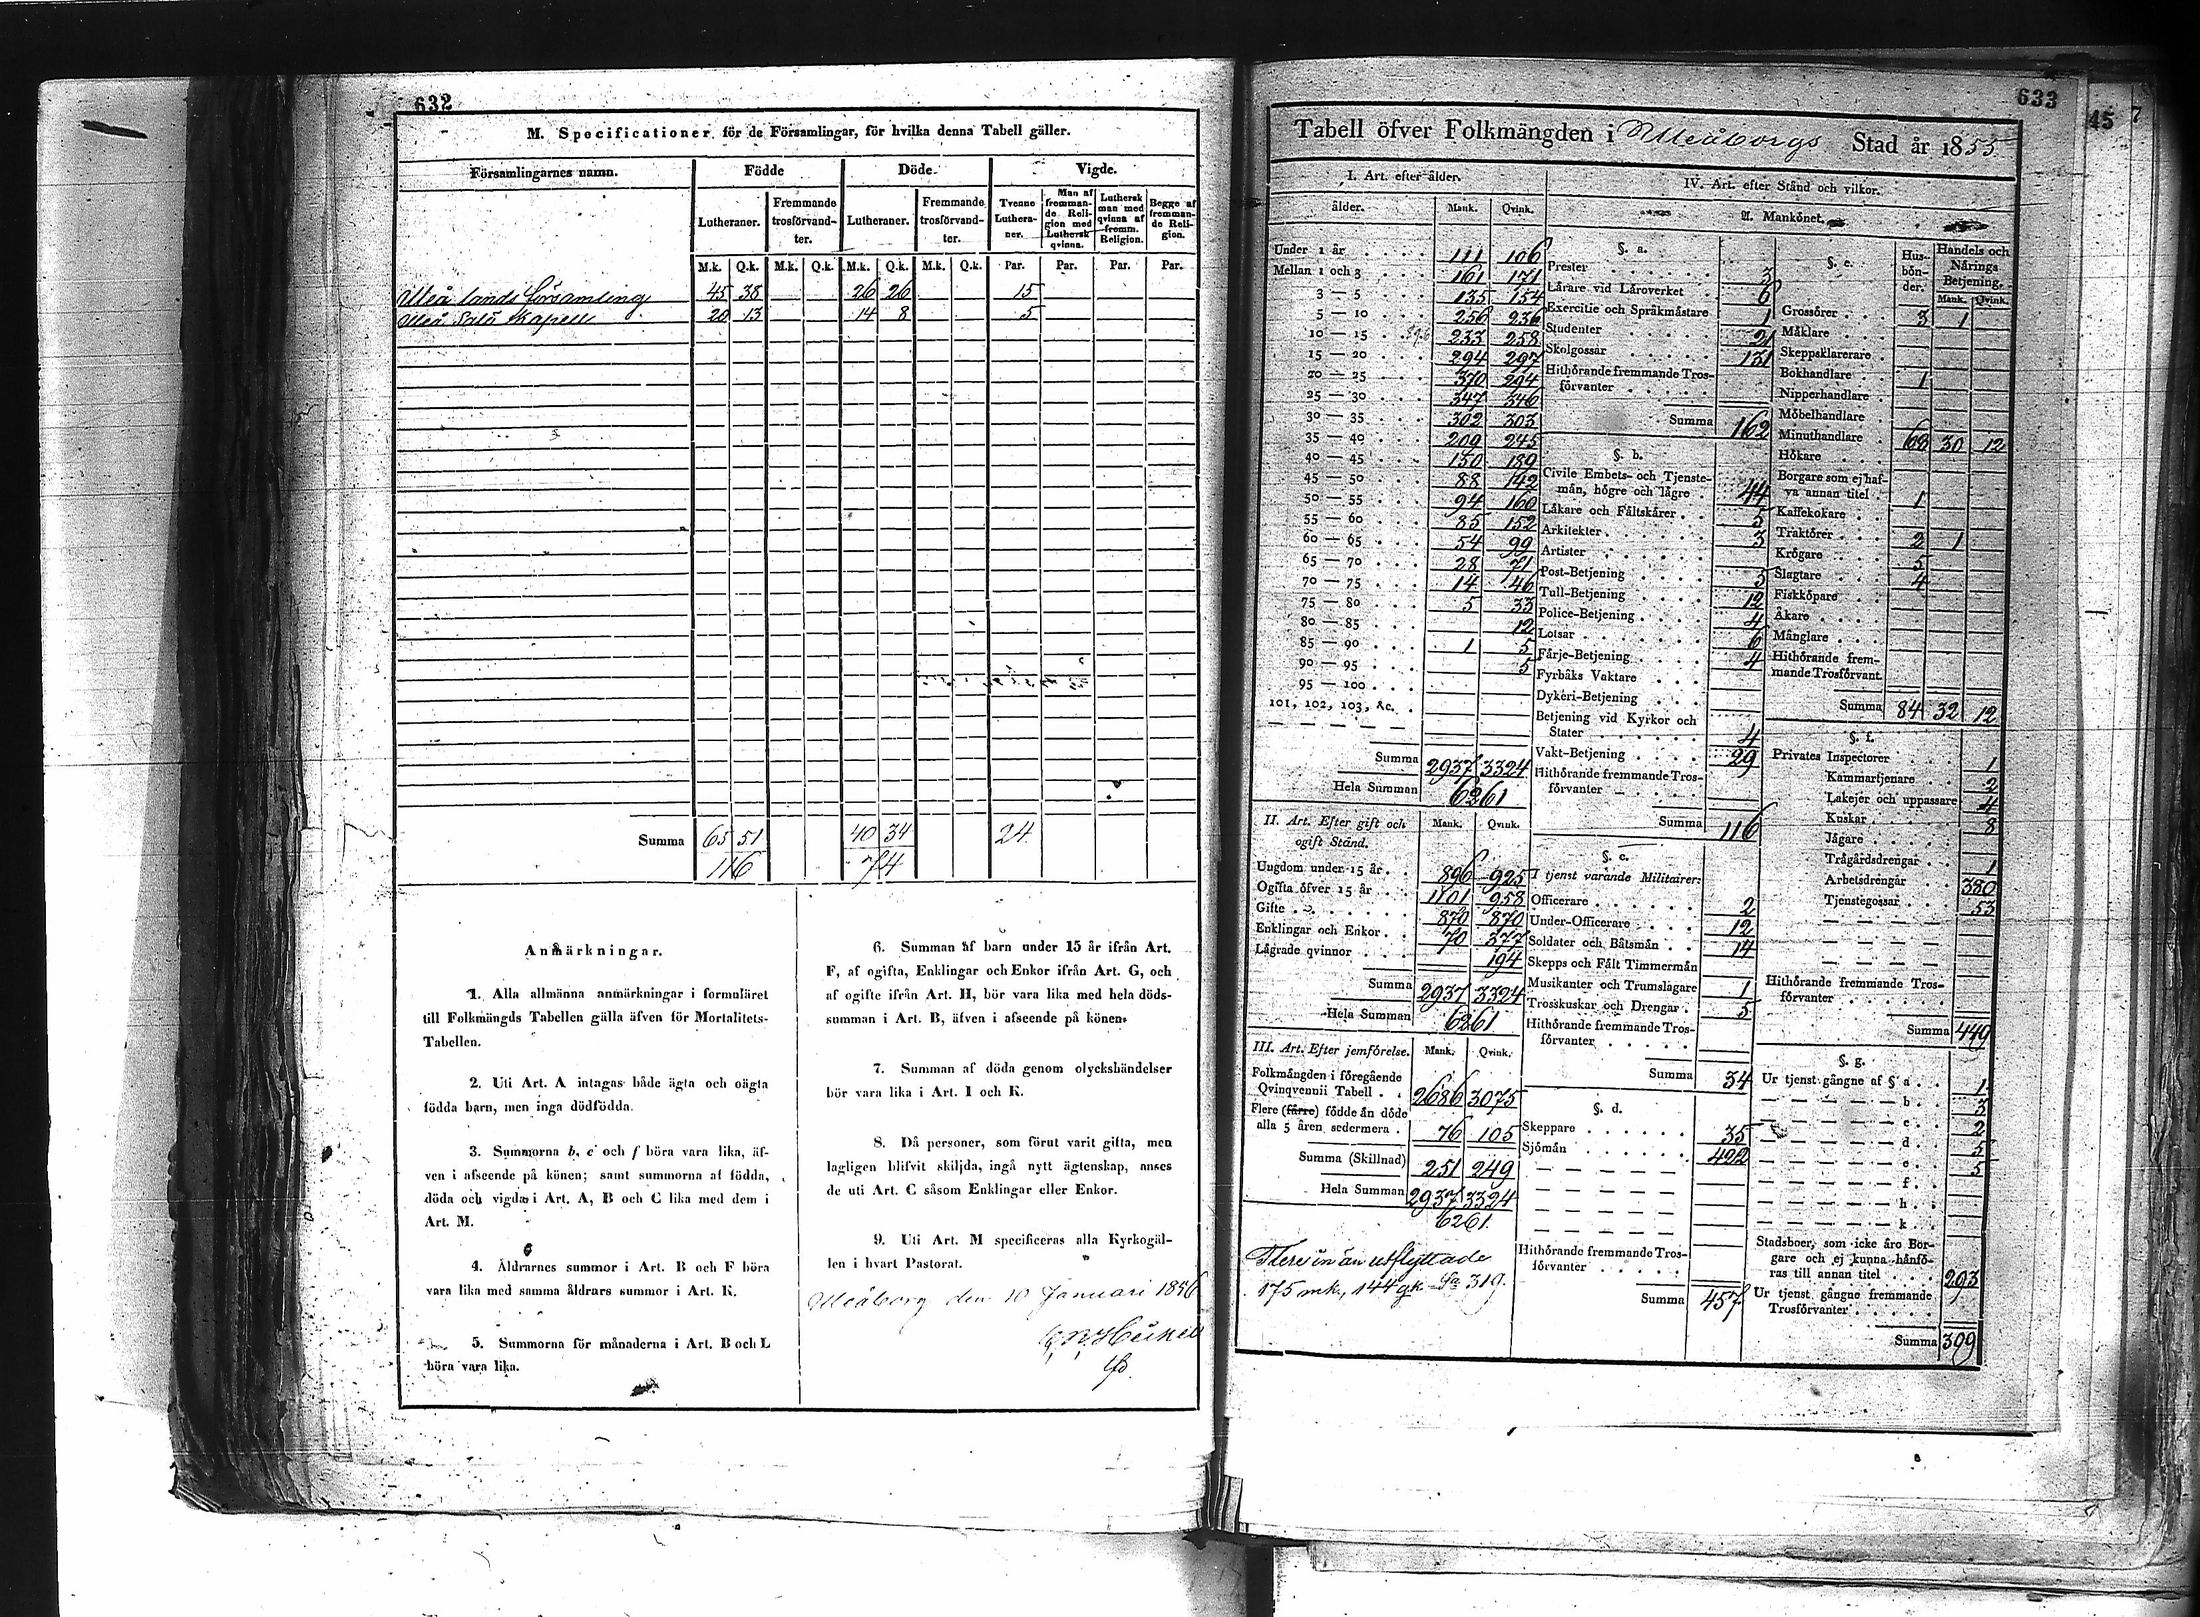 632
M. Specificationer för de Församlingar, för hvilka denna Tabell gäller.
Församlingarnes namn. Födde Döde. Vigde.
Lutheraner. Fremmande trosförvandter. Lutheraner. Fremmande trosförvandter. Tvenne Lutheraner. Man af fremmande Religion med Luthersk qvinna. Luthersk man med qvinna af fremm. Religion. Begge af fremmande Religion.
M.k. Q.k. M.k. Q.k. M.k. Q.k. M.k. Q.k. Par. Par. Par. Par.
Uleå lands församling 45 38 26 26 15
Uleå Salo Kapell 20 13 14 8 5
Summa 65 51 40 34 24
116 74
Anmärkningar.
1. Alla allmänna anmärkningar i formuläret
till Folkmängds Tabellen gälla äfven för Mortalitets-
Tabellen.
2. Uti Art. A intagas både ägta och oägta
födda barn, men inga dödfödda.
3. Summorna b, c och f böra vara lika, äf-
ven i afseende på könen; samt summorna af födda,
döda och vigda i Art. A, B och C lika med dem i
Art. M.
4. Äldrarnes summor i Art. B och F böra
vara lika med samma åldrars summor i Art. K.
5. Summorna för månaderna i Art. B och L
böra vara lika.
6. Summan af barn under 15 år ifrån Art.
F, af ogifta, Enklingar och Enkor ifrån Art. G, och
af ogifte ifrån Art. H, bör vara lika med hela döds-
summan i Art. B, äfven i afseende på könen.
7. Summan af döda genom olyckshändelser
bör vara lika i Art. I och K.
8. Då personer, som förut varit gifta, men
lagligen blifvit skiljda, ingå nytt ägtenskap, anses
de uti Art. C såsom Enklingar eller Enkor.
9. Uti Art. M specificeras alla Kyrkogäl-
len i hvart Pastorat.
Uleåborg den 10 Januari 1856
633
45
7
Tabell öfver Folkmängden i Uleåborgs Stad år 1855
I. Art. efter ålder.
ålder. Mank. Qvink.
Under 1 år 111 106
Mellan 1 och 3 161 171
3 — 5 135 154
5 — 10 256 236
10 — 15 233 258
15 — 20 294 297
20 — 25 370 294
25 — 30 347 346
30 — 35 302 303
35 — 40 209 245
40 — 45 150 189
45 — 50 88 142
50 — 55 94 160
55 — 60 85 152
60 — 65 54 99
65 — 70 28 71
70 — 75 14 46
75 — 80 5 33
80 — 85 12
85 — 90 1 5
90 — 95 5
95 — 100
101, 102, 103, &c.
Summa 2937 3324
Hela Summan 6261
II. Art. Efter gift och ogift Stånd. Mank. Qvink.
Ungdom under 15 år 896 925
Ogifta öfver 15 år 1101 958
Gifte 870 870
Enklingar och Enkor 70 377
Lägrade qvinnor 194
Summa 2937 3324
Hela Summan 6261
III. Art. Efter jemförelse. Mank. Qvink.
Folkmängden i föregående
Qvinqvennii Tabell 2686 3075
Flere (färre) födde än döde
alla 5 åren sedermera 76 105
Summa (Skillnad) 251 249
Hela Summan 2937 3324
6261
Flere in än utflyttade
175 mk., 144 qk. Sa 319.
IV. Art. efter Stånd och vilkor.
A. Mankönet.
§. a.
Prester 3
Lärare vid Läroverket 6
Exercitie och Språkmästare 1
Studenter 21
Skolgossar 131
Hithörande fremmande Tros-
förvanter
Summa 162
§. b.
Civile Embets- och Tjenste-
män, högre och lägre 44
Läkare och Fältskärer 5
Arkitekter 3
Artister
Post-Betjening 5
Tull-Betjening 12
Police-Betjening 4
Lotsar 6
Färje-Betjening 4
Fyrbåks Vaktare
Dykeri-Betjening
Betjening vid Kyrkor och
Stater 4
Vakt-Betjening 29
Hithörande fremmande Tros-
förvanter
Summa 116
§. c.
I tjenst varande Militairer:
Officerare 2
Under-Officerare 12
Soldater och Båtsmän 14
Skepps och Fält Timmermän
Musikanter och Trumslagare 1
Trosskuskar och Drengar 5
Hithörande fremmande Tros-
förvanter
Summa 34
§. d.
Skeppare 35
Sjömän 422
Hithörande fremmande Tros-
förvanter
Summa 457
§. e. Husbönder. Handels och Närings Betjening.
Mank. Qvink.
Grossörer 3 1
Mäklare
Skeppsklarerare
Bokhandlare 1
Nipperhandlare
Möbelhandlare
Minuthandlare 68 30 12
Hökare
Borgare som ej haf-
va annan titel 1
Kaffekokare
Traktörer 2 1
Krögare 5
Slagtare 4
Fiskköpare
Åkare
Månglare
Hithörande frem-
mande Trosförvant.
Summa 84 32 12
§. f.
Privates Inspectorer 1
Kammartjenare 2
Lakejer och uppassare 4
Kuskar 8
Jägare
Trägårdsdrengar 1
Arbetsdrengar 380
Tjenstegossar 53
Hithörande fremmande Tros-
förvanter
Summa 449
§. g.
Ur tjenst gångne af § a 1
b 3
c 2
d 5
e 5
f
h
k
Stadsboer, som icke äro Bor-
gare och ej kunna hänfö-
ras till annan titel 293
Ur tjenst gångne fremmande
Trosförvanter
Summa 309